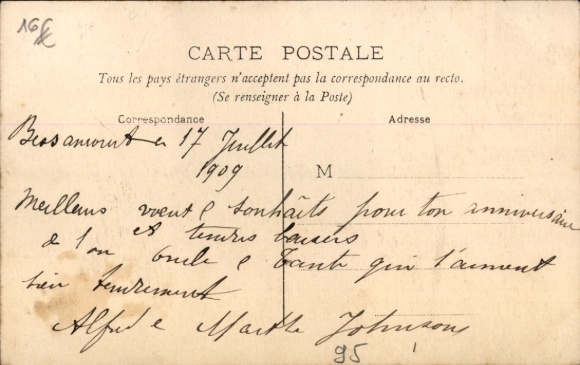 CARTE POSTALE
Tous les pays étrangers n'acceptent pas la correspondance au recto.
(Se renseigner à la Poste)
Correspondance
Adresse
Bessancourt 17 Juillet
1909
M
Meilleurs voeux & souhaits pour ton anniversaire
et tendres baisers
de ton oncle & tante qui t'aiment
bien tendrement
Alfred & Marthe Johnson
95